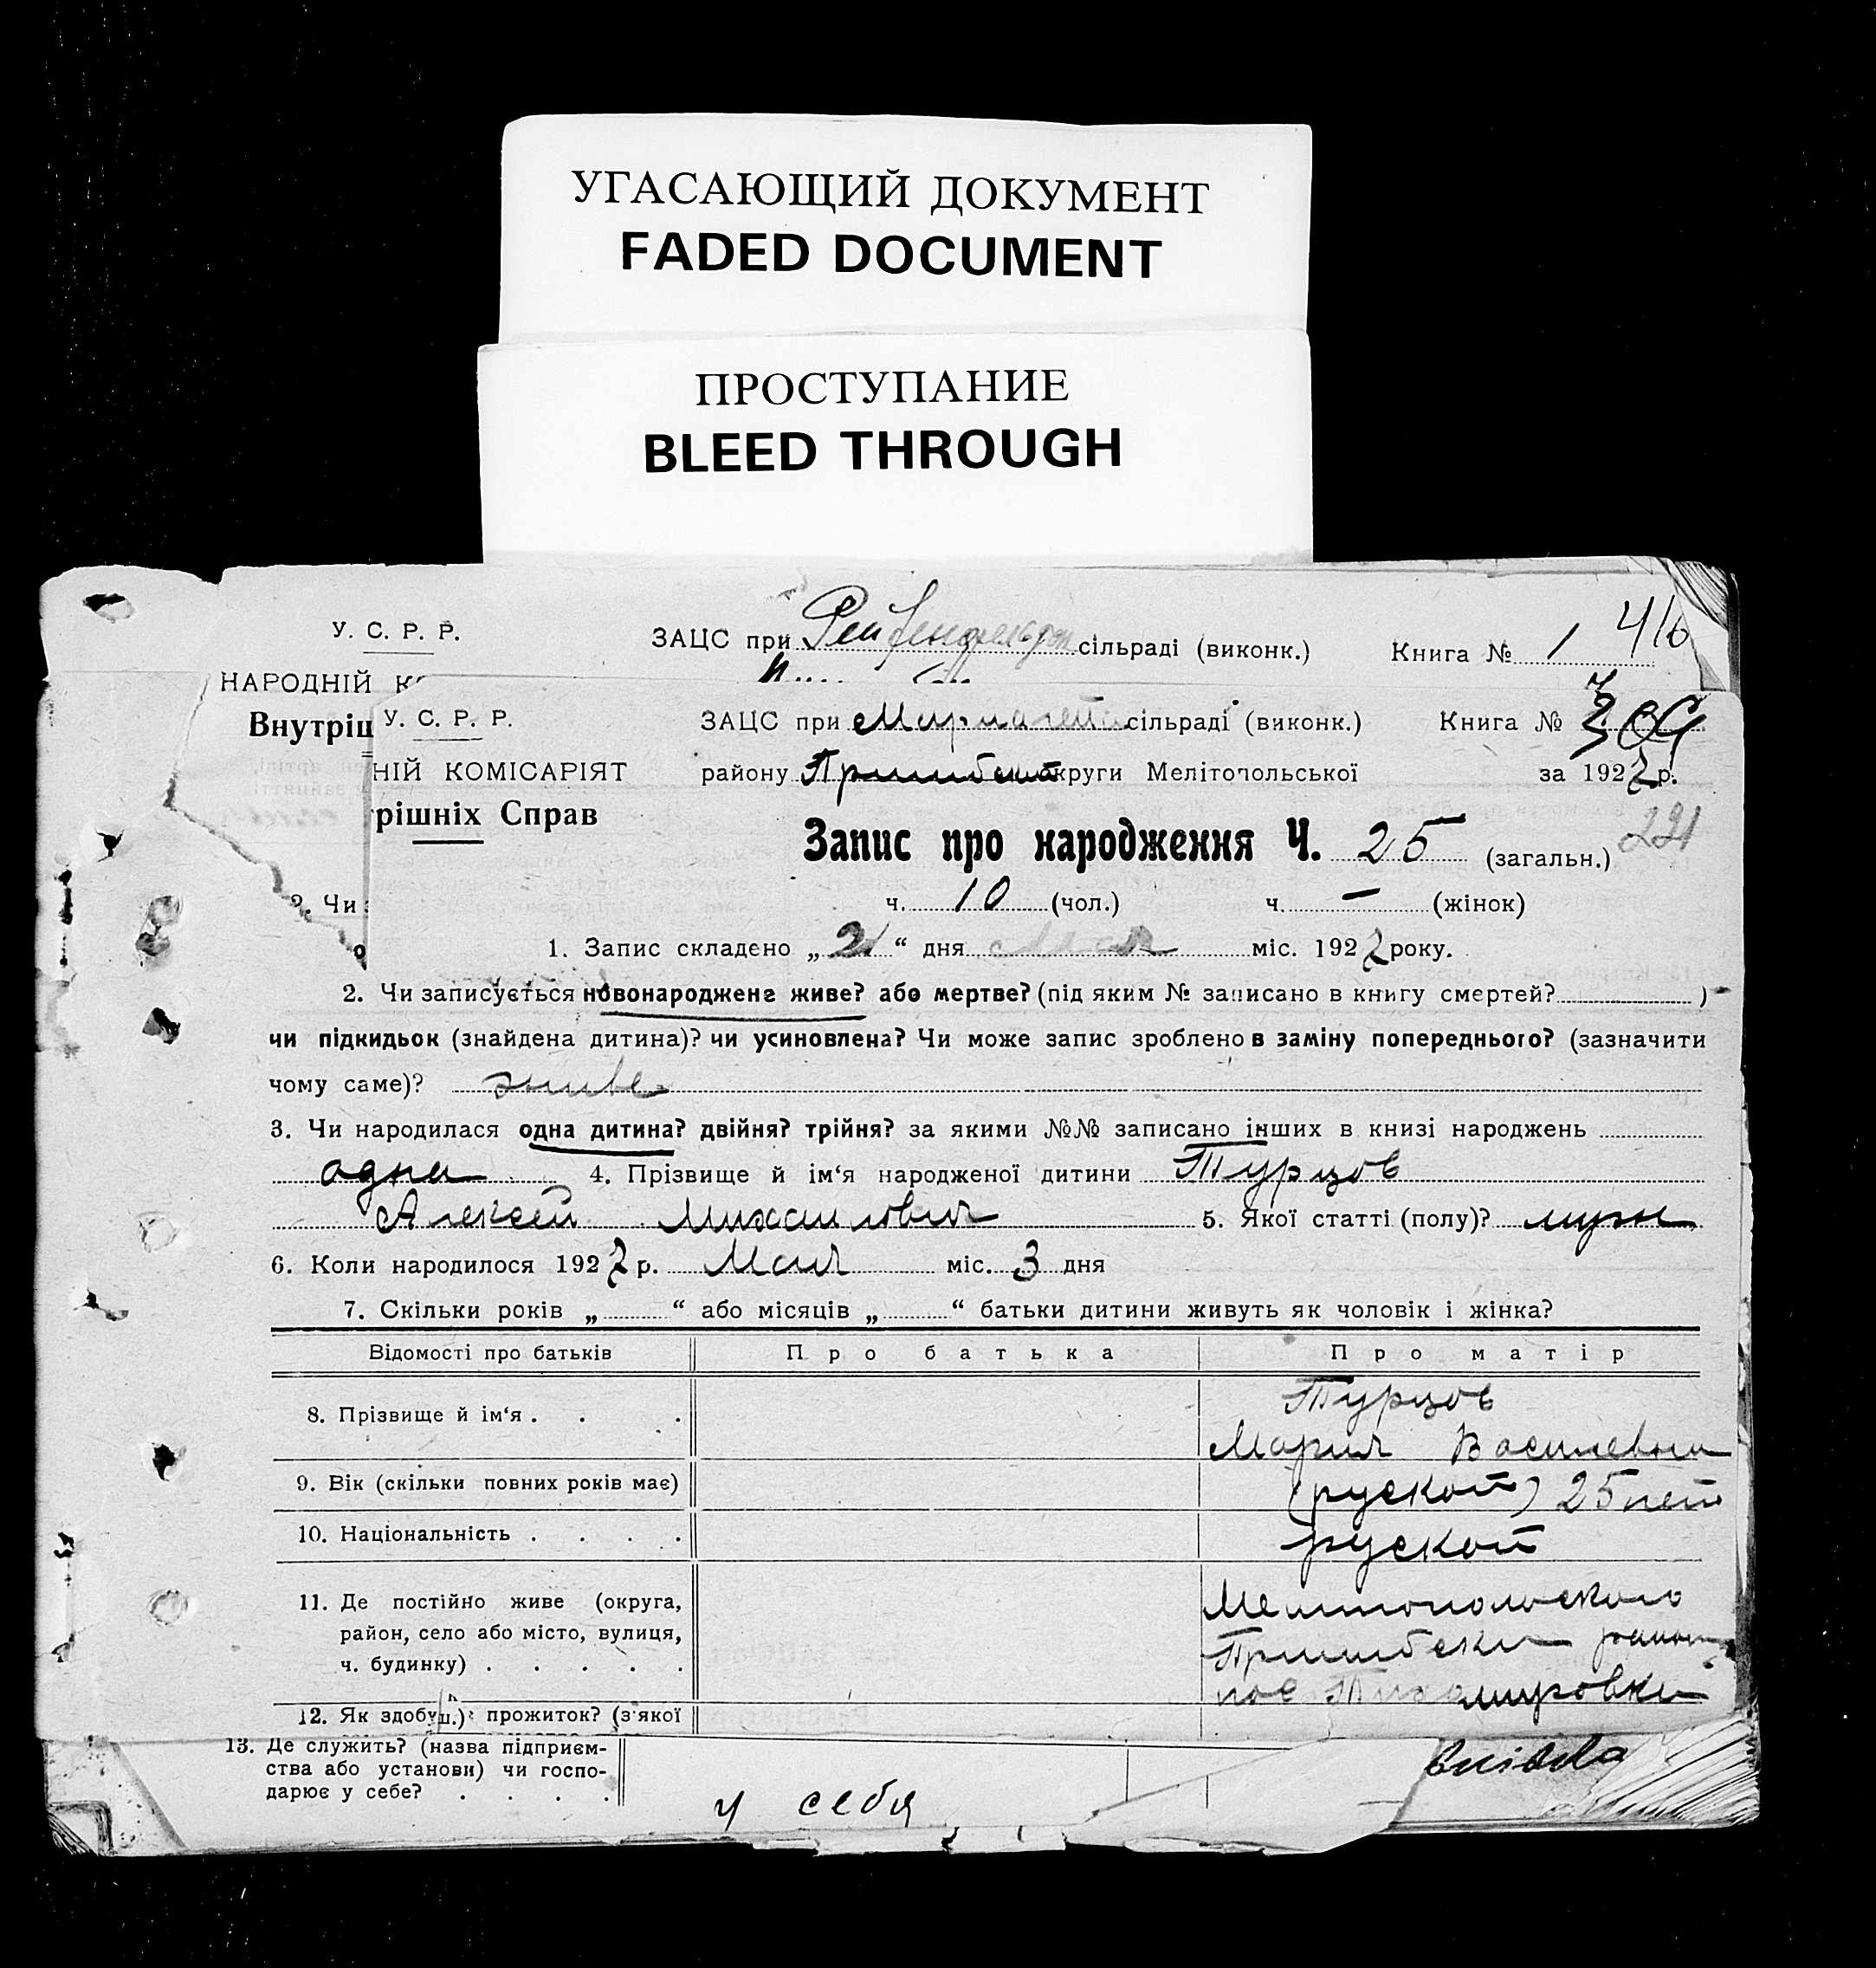 УГАСАЮЩИЙ ДОКУМЕНТ
FADED DOCUMENT
ПРОСТУПАНИЕ
BLEED THROUGH
У. С. Р. Р.
ЗАЦС при сільраді (виконк.) Книга № 1 416
НАРОДНІЙ
Внутріш
У. С. Р. Р.
ЗАЦС при сільраді (виконк.) Книга №
НІЙ КОМІСАРІЯТ
району округи Мелітопольської за 1927 р.
рішніх Справ
Запис про народження Ч. 25 (загальн.) 221
2. Чи
ч. 10 (чол.) ч. — (жінок)
1. Запис складено „21“ дня Мая міс. 1927 року.
2. Чи записується новонароджене живе? або мертве? (під яким № записано в книгу смертей? )
чи підкидьок (знайдена дитина)? чи усиновлена? Чи може запис зроблено в заміну попереднього? (зазначити
чому саме)? живе
3. Чи народилася одна дитина? двійня? трійня? за якими №№ записано інших в книзі народжень
одна 4. Прізвище й ім‘я народженої дитини Турцов
Алексей Михаилович 5. Якої статті (полу)? муж
6. Коли народилося 1927 р. Мая міс. 3 дня
7. Скільки років „ “ або місяців „ “ батьки дитини живуть як чоловік і жінка?
Відомості про батьків Про батька Про матір
8. Прізвище й ім‘я . . . Турцов
Мария Василевна
9. Вік (скільки повних років має) (руской) 25 лет
10. Національність . . . . руской
11. Де постійно живе (округа,
район, село або місто, вулиця,
ч. будинку) . . . . .
Мелитополского
Пришибски район
12. Як здобу прожиток? (з якої
13. Де служить? (назва підприєм-
ства або установи) чи госпо-
дарює у себе? . . . .
у себя